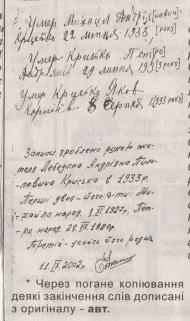 Умер Михаил Андрі[йович]
22 липня 1933 [року]
Умер Криська Петро
Андріянів 29 липня 193[3 року]
Умер Яков
8 Серпня [1933 року]
Запись зроблено рукою жи-
теля Лебедина Андріяна Пили-
повича Криська в 1933р.
Перші двоє - його діти: Ми-
хайло народ. 1927р., Пет-
ро народ. 28.VI.1920р.
Третій - якийсь його родич
11.IV.2002р.
* Через погане копіювання
деякі закінчення слів дописані
з оригіналу - авт.